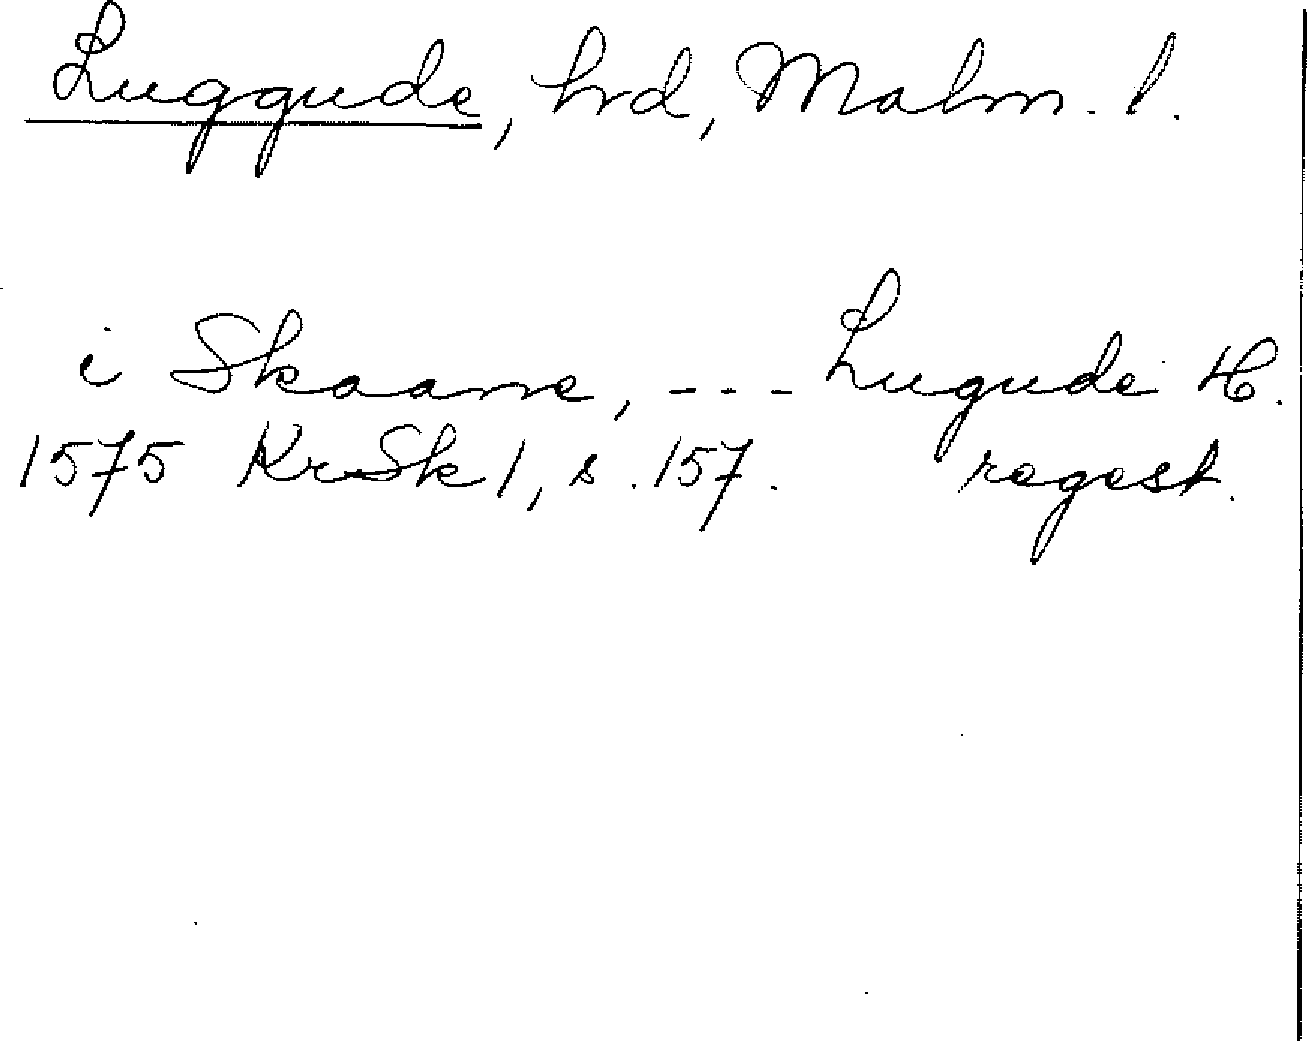 Luggude, hrd, Malm. l.
i Skaane, --- Lugude H.
1575 KrSk 1, s. 157. regest.